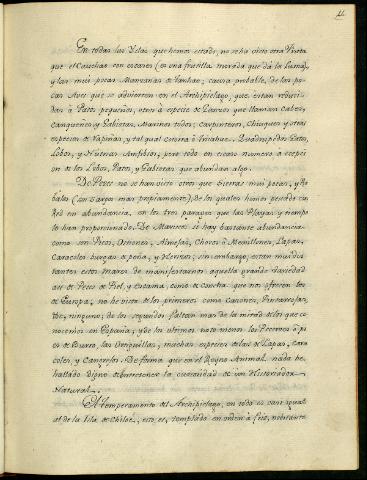 En todas las Yslas que hemos estado, no se ha visto otra fruta
que el Cauchao con escases (es una frutilla morada que dá la Luma)
y las mui pocas Manzanas de Caylac, causa probable, de las po-
cas Aves que se advierten en el Archipielago, que estan reduci-
das à Patos pequeños, otros à especie de que llaman Cabes,
Canqueñes, y Gabiotas, Marinos todos; Carpinteros, Chiuques y otras
especies de Rapiñas, y tal qual Quadrupedos Gatos,
Lobos, y Nutrias Amfibios, pero todo en escaso numero à excepci-
on de los Lobos, Patos, y Gabiotas que abundan algo.
De Peces no se han visto otros que Sierras mui pocas, y Ro-
balos (con Sarga mas propriamente), de los quales hemos pescado con
Red en abundancia, en los tres parages que las Playas y tiempo
lo han proporcionado. De Mariscos si hay bastante abundancia
como son Picos, Ostiones, Almejas, Choros ò Memillones, Lapas,
Caracoles burgaos de peña, y Herizos; sin embargo, estan mui dis-
tantes estos mares de manifestarnos aquella grande variedad
asi de Peces de Piel, y Escama, como de Concha que nos ofrecen los
de Europa; no he visto de los primeros como Cazones, Pintarrojas,
&c, ninguno; de los segundos faltan mas de la mitad de los que co-
nocemos en España; y de los ultimos noto menos los Pecebres ò pi-
es de Burro, las Ortiguillas, muchas especies de las de Lapas, Cara-
coles, y Cangrejos. De forma que en el Reyno Animal, nada he
hallado digno de merecerse la curiosidad de un Historiador
Natural.
El temperamento del Archipielago, en todo es casi igual
al de la Isla de Chiloé, esto es, templado en orden à frio, no obstante